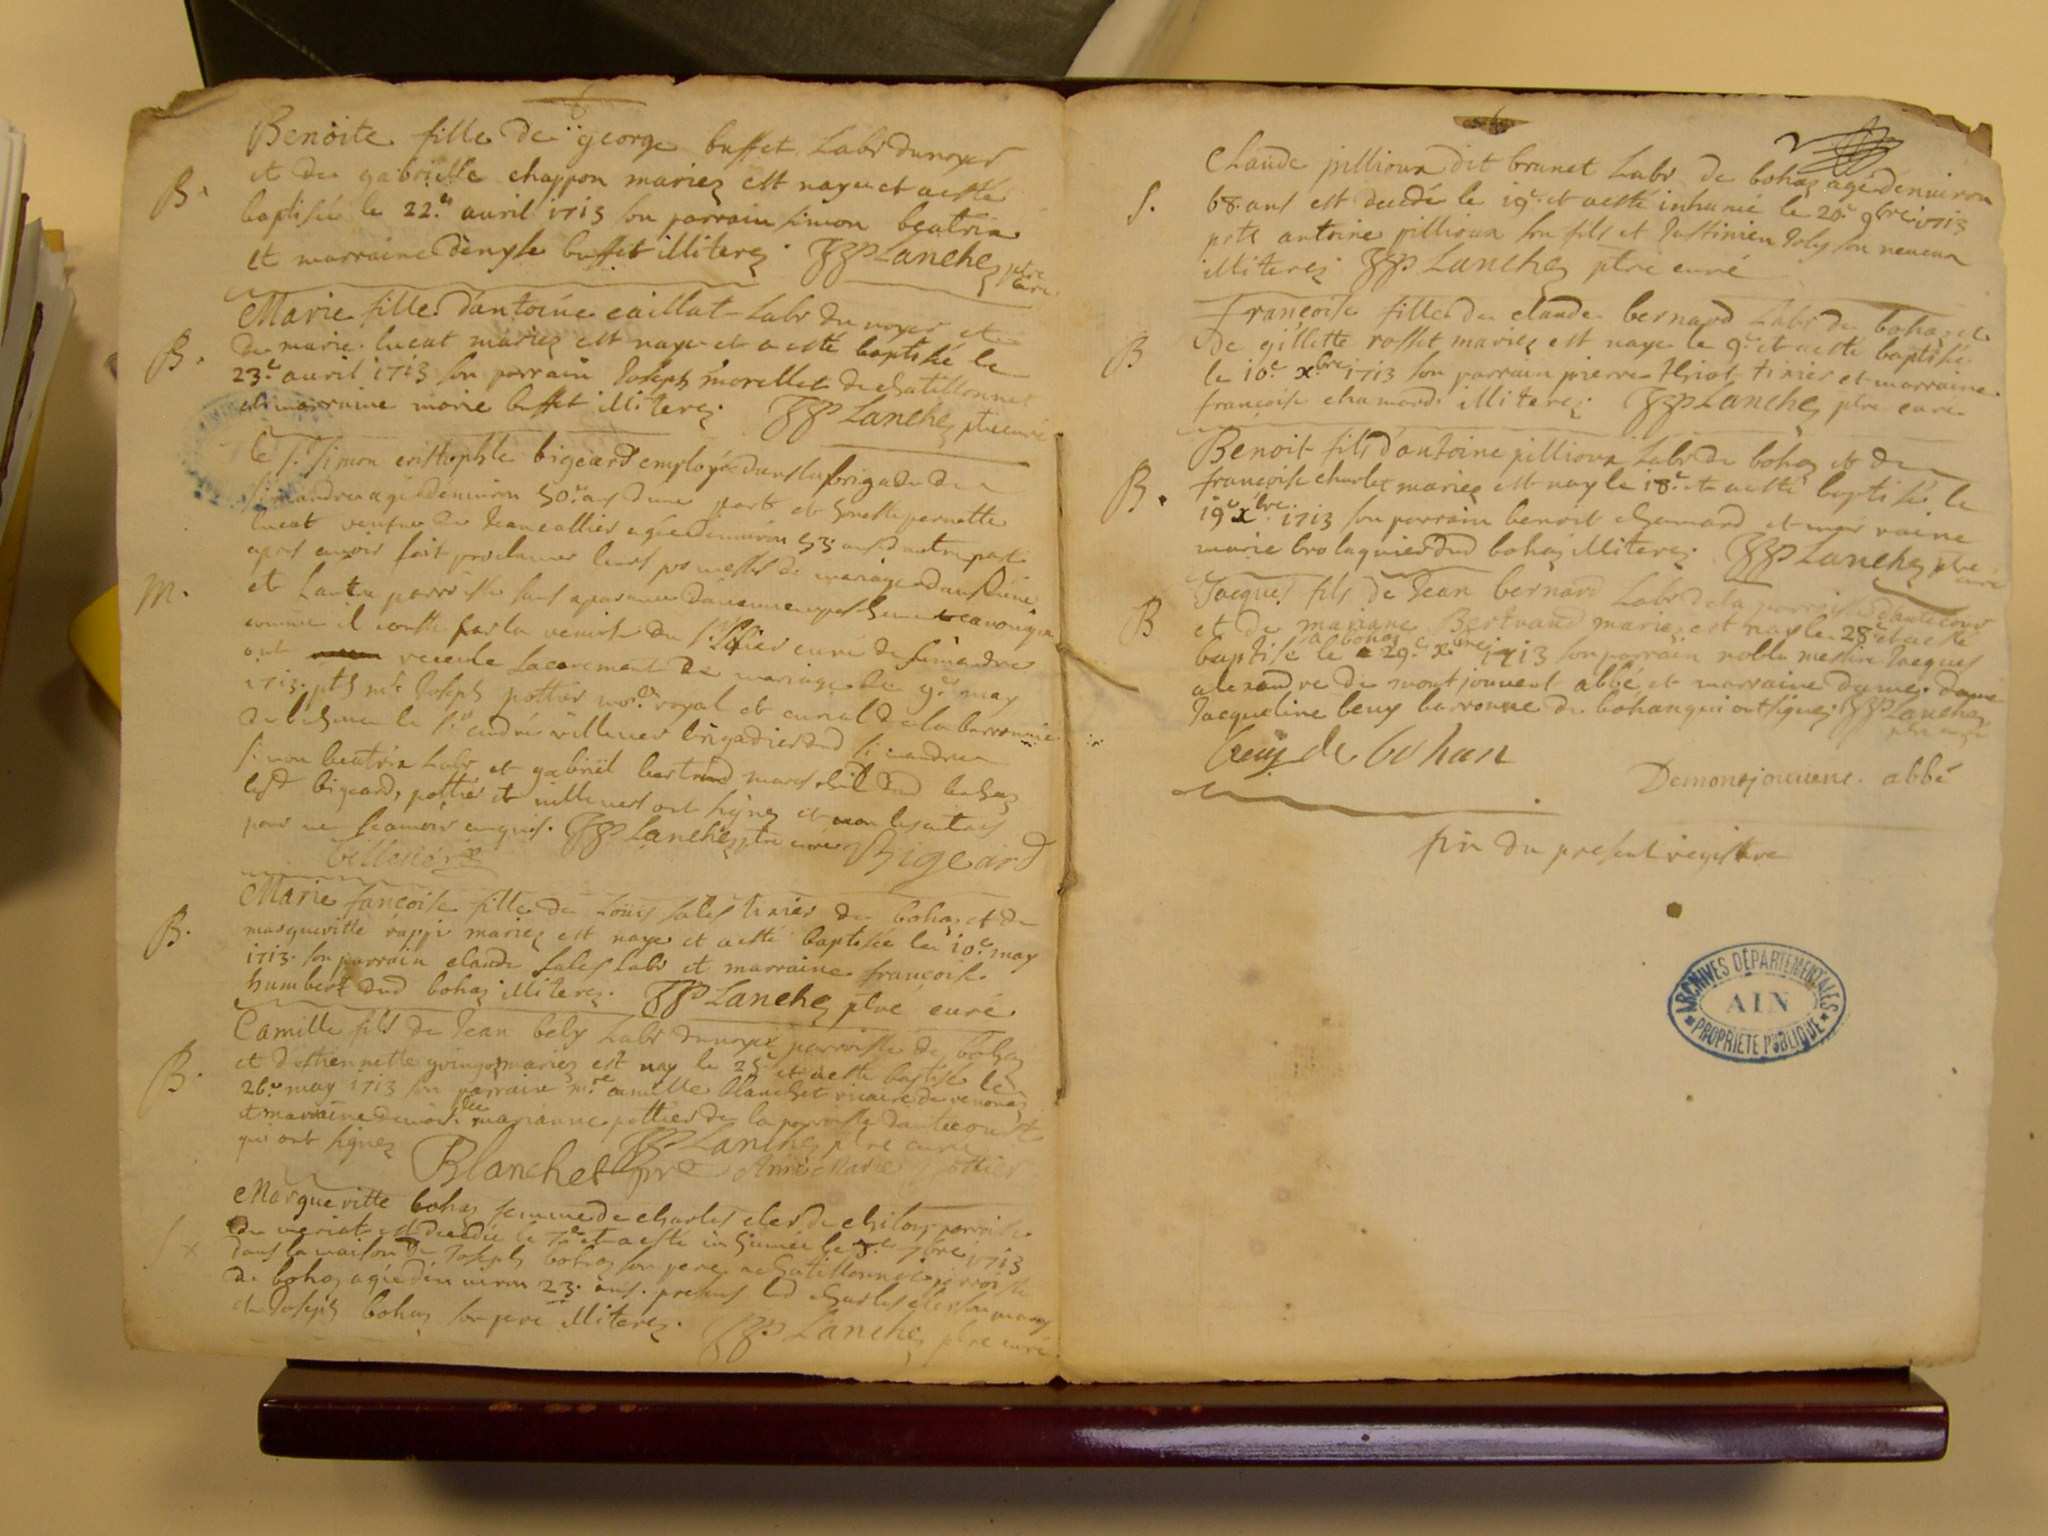 Benoite fille de george buffet Labr dunoyer
B. et de gabrielle chappon mariez est naye et a esté
baptisée le 22.e auril 1713 son parrain simon beatrix
et marraine denyse buffet illiterez. JJP Lanchez ptre curé
Marie fille d'antoine caillat Labr du noyer et
B. de marie lucat mariez est naye et a esté baptisée le
23.e auril 1713 son parrain Joseph morellet de chatillonnet
et marraine marie buffet illiterez. JJP Lanchez ptre curé
le Sr. Simon cristophle bigeard employé dans la brigade de
simandre agé denuiron 50 ans dune part et honeste pernette
lucat veufue de Jean allier agée denuiron 53 ans dautre part
apres auoir fait proclamer leurs promesses de mariage dans
M. et L'autre parroisse sans aparance daucun empeschement canonique
comme il conste par la remise du Sr. curé de simandre
ont receu le sacrement de mariage le 9.e may
1713. pts mr. Joseph pottier no.re royal et curial de la barronnie
de bohan le Sr. andré villener brigadier dud simandre
simon beatrix Labr et gabriel bertrand mareschal dud bohaz
lesd bigeard, pottier et villener ont signez et non les autres
pour ne scauoir enquis. JJP Lanchez ptre curé Bigeard
Villener
Marie francoise fille de Loüis sales tixier de bohaz et de
B. margueritte rappy mariez est naye et a esté baptisée le 10.e may
1713. son parrain claude sales Labr et marraine francoise
humbert dud bohaz illiterez. JJP Lanchez ptre curé
Camille fils de Jean bely Labr dunoyer parroisse de bohaz
B. et destiennette mariez est nay le 25.e et a esté baptisé le
26.e may 1713 son parrain mre camille blanchet vicaire de
et marraine demoislle marianne pottier de la parroisse dantecourt
qui ont signez JJP Lanchez ptre curé
Blanchet ptre Anne Marie pottier
Margueritte bohaz femme de charles cler de chiloup parroisse
S x de est decedée le et a esté inhumée le 7bre 1713
dans la maison de Joseph bohaz son pere a chatillonnet parroisse
de bohaz agée denuiron 23. ans. presens led charles cler son mary
et Joseph bohaz son pere illiterez. JJP Lanchez ptre curé
Claude pillioux dit brunet Labr de bohaz agé denuiron
S. 68. ans est decedé le 19.e et a esté inhumé le 20.e 9bre 1713
pnts antoine pillioux son fils et Justinien Joly son neueux
illiterez JJP Lanchez ptre curé
Francoise fille de claude bernard Labr de bohaz et
B de gillette rosset mariez est naye le 9.e et a esté baptisée
le 10.e xbre 1713 son parrain pierre tixier et marraine
francoise chamard illiterez. JJP Lanchez ptre curé
Benoit fils d'antoine pillioux Labr de bohaz et de
B. francoise charles mariez est nay le 18.e et a esté baptisé le
19.e xbre 1713 son parrain benoit chamard et marraine
marie brolaquier dud bohaz illiterez. JJP Lanchez ptre curé
Jacques fils de Jean bernard Labr de la parroisse d'antecour
B et de mariane Bertrand mariez est nay le 28.e et a esté
baptisé a bohaz le 29.e xbre 1713 son parrain noble messire Jacques
alexandre de montjouuent abbé et marraine dame
Jacqueline beuy barronne de bohan qui ont signez JJP Lanchez
ptre curé
beuy de bohan
Demontjouuent abbé
fin du present registre
ARCHIVES DÉPARTEMENTALES
AIN
PROPRIÉTÉ PUBLIQUE